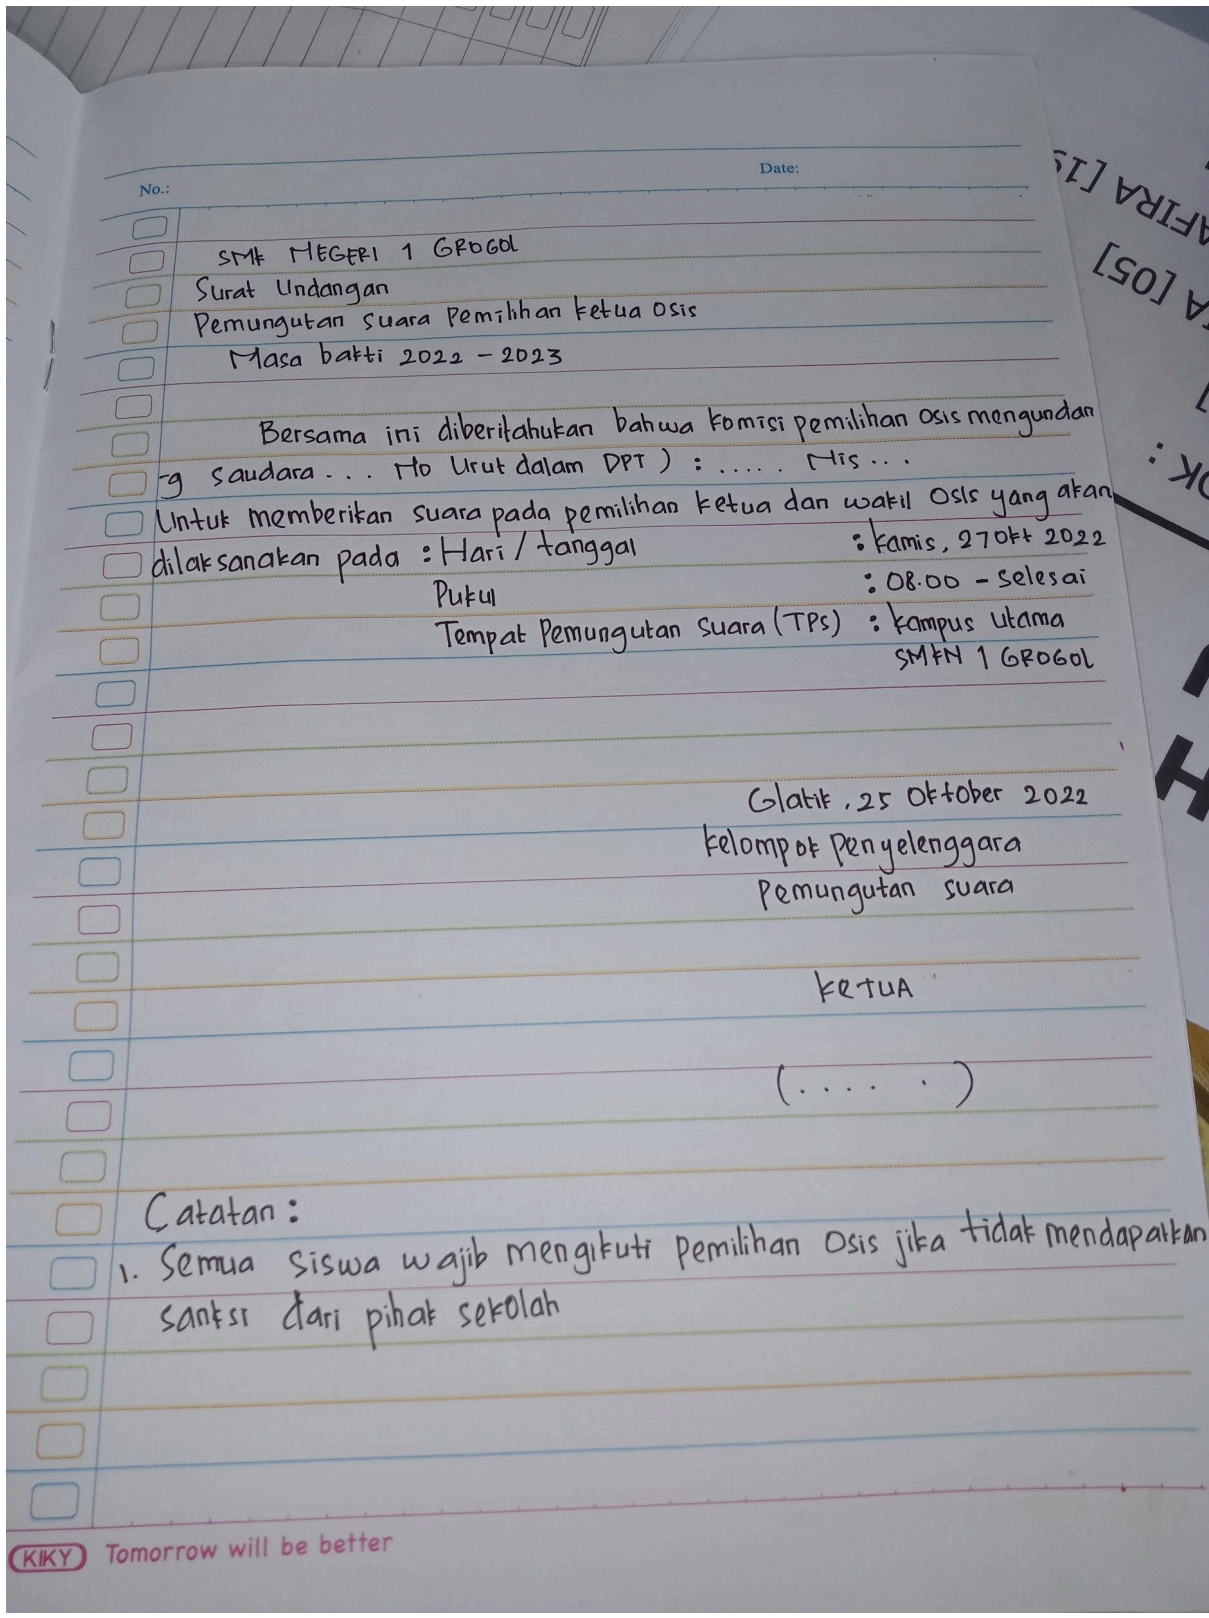 No.:
Date:
SMK NEGERI 1 GROGOL
Surat Undangan
Pemungutan suara Pemilihan ketua Osis
Masa bakti 2022 - 2023
Bersama ini diberitahukan bahwa komisi pemilihan Osis mengundan
g saudara ... No Urut dalam DPT ) : ..... Nis ...
Untuk memberikan suara pada pemilihan ketua dan wakil Osis yang akan
dilaksanakan pada : Hari / tanggal : kamis, 27 Okt 2022
Pukul : 08.00 - selesai
Tempat Pemungutan Suara (TPS) : kampus utama
SMKN 1 GROGOL
Glatik, 25 Oktober 2022
kelompok penyelenggara
pemungutan suara
KETUA
(.....)
Catatan :
1. Semua siswa wajib mengikuti pemilihan Osis jika tidak mendapatkan
sanksi dari pihak sekolah
KIKY Tomorrow will be better
AFIRA [19
A [05]
OK :
H